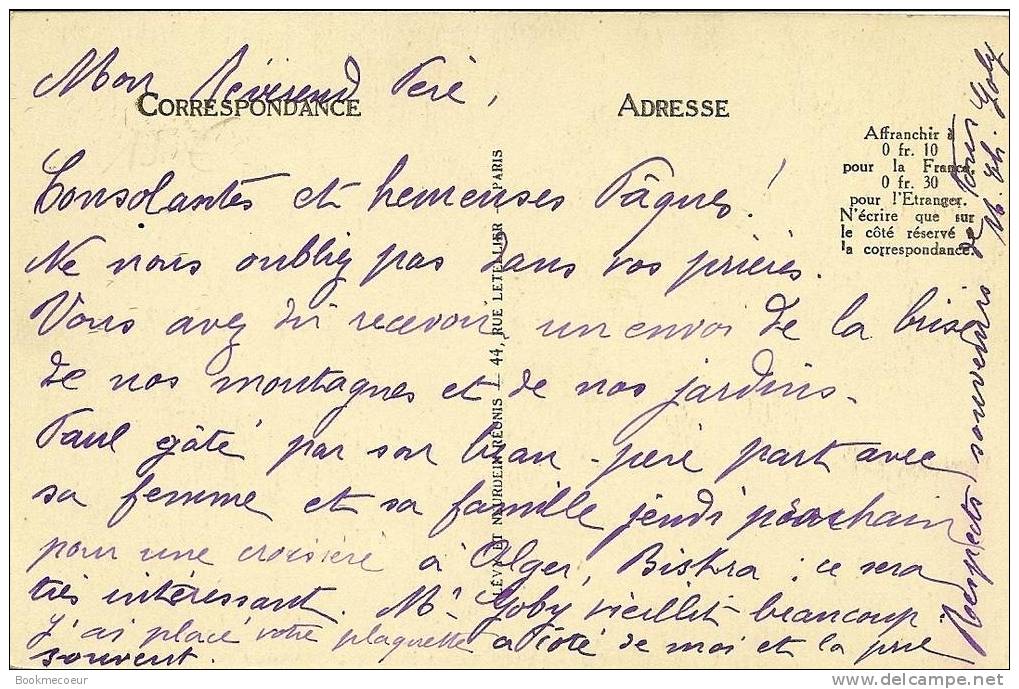 Mon Révérend Père,
CORRESPONDANCE
ADRESSE
Affranchir à
0 fr. 10
pour la France,
0 fr. 30
pour l'Etranger.
N'écrire que sur
le côté réservé à
la correspondance.
Consolantes et heureuses Pâques!
Ne nous oubliez pas dans vos prières.
Vous avez dû recevoir un envoi de la brise
de nos montagnes et de nos jardins.
Paul gâté par son beau-père part avec
sa femme et sa famille jeudi prochain
pour une croisière à Alger, Biskra : ce sera
très intéressant. Mr Goby vieillit beaucoup.
J'ai placé votre plaquette à côté de moi et la
souvent.
Respects, souvenirs de tous
M. Goby
LÉVY ET NEURDEIN RÉUNIS — 44, RUE LETELLIER - PARIS
Bookmecoeur
delcampe.net